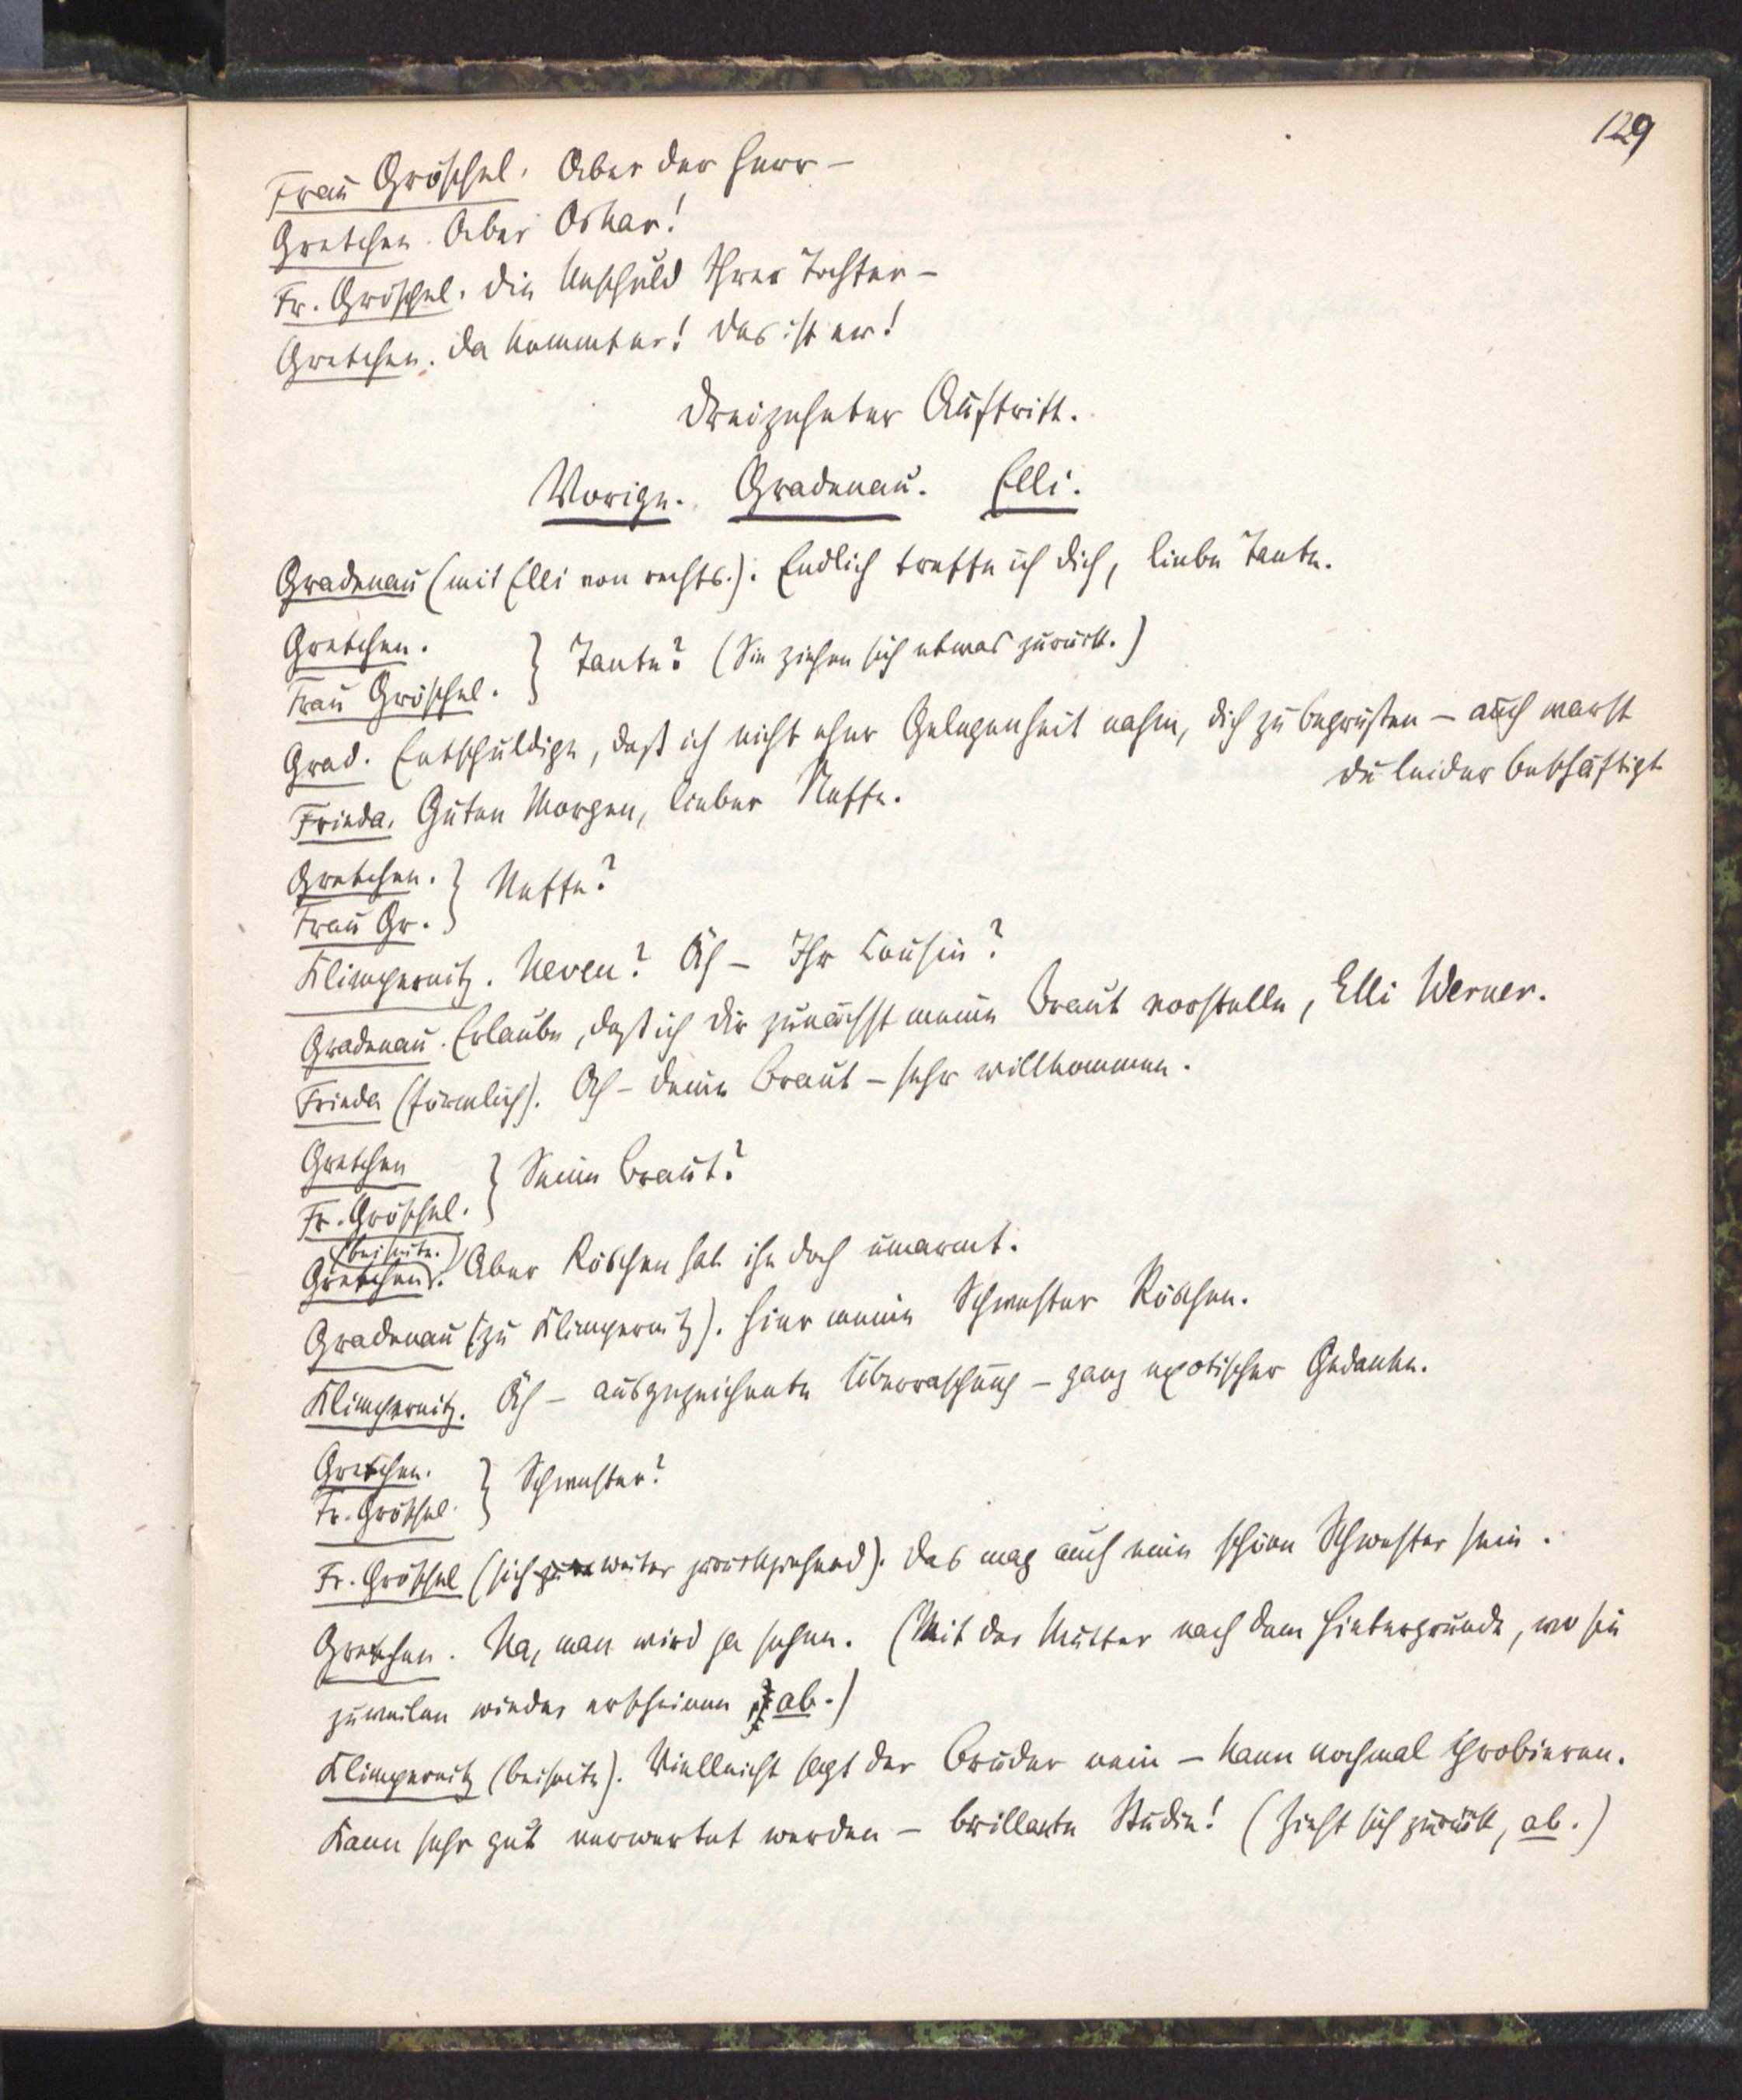 129
Frau Gröschel. Aber der Herr –
Gretchen. Aber Oskar!
Fr. Gröschel. Die Unschuld Ihrer Tochter –
Gretchen. Da kommt er! Das ist er!
Dreizehnter Auftritt.
Vorige. Gradenau. Elli.
Gradenau (mit Elli von rechts.). Endlich treffe ich dich, liebe Tante.
Gretchen. } Tante? (Sie ziehen sich etwas zurück.)
Frau Gröschel.
Grad. Entschuldige, daß ich nicht eher Gelegenheit nahm, dich zu begrüßen – auch warst
du leider beschäftigt
Frieda. Guten Morgen, lieber Neffe.
Gretchen. } Neffe?
Frau Gr.
Klimpernitz. Neveu? Äh – Ihr Cousin?
Gradenau. Erlaube, daß ich dir zunächst meine Braut vorstelle, Elli Werner.
Frieda (förmlich). Ah – deine Braut – sehr willkommen.
Gretchen } Seine Braut?
Fr. Gröschel.
(beiseite.)
Gretchen. Aber Röschen hat ihn doch umarmt.
Gradenau (zu Klimpernitz). Hier meine Schwester Röschen.
Klimpernitz. Äh – ausgezeichnete Überraschung – ganz exotischer Gedanke.
Gretchen. } Schwester?
Fr. Gröschel.
Fr. Gröschel (sich weiter zurückziehend). Das mag auch eine schöne Schwester sein.
Gretchen. Na, man wird ja sehen. (Mit der Mutter nach dem Hintergrunde, wo sie
zuweilen wieder erscheinen ab.)
Klimpernitz (beiseite). Vielleicht sagt der Bruder nein – kann nochmal probieren.
Kann sehr gut verwertet werden – brillante Studie! (Zieht sich zurück, ab.)